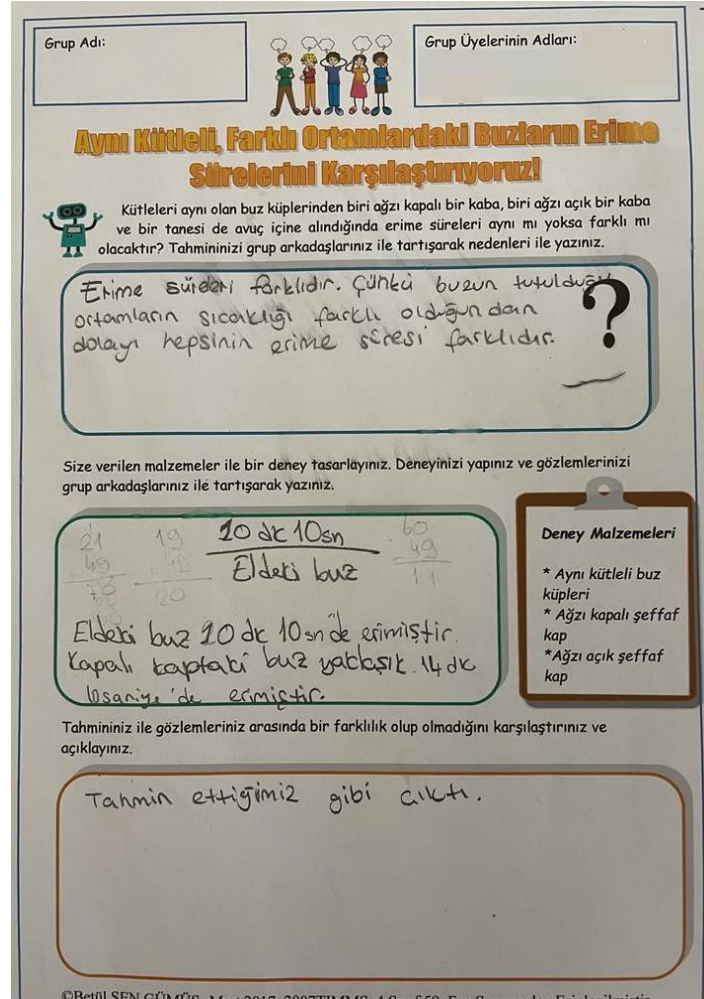 Grup Adı:
Grup Üyelerinin Adları:
Aynı Kütleli, Farklı Ortamlardaki Buzların Erime
Sürelerini Karşılaştırıyoruz!
Kütleleri aynı olan buz küplerinden biri ağzı kapalı bir kaba, biri ağzı açık bir kaba
ve bir tanesi de avuç içine alındığında erime süreleri aynı mı yoksa farklı mı
olacaktır? Tahmininizi grup arkadaşlarınız ile tartışarak nedenleri ile yazınız.
Erime süreleri farklıdır. Çünkü buzun tutulduğu
ortamların sıcaklığı farklı olduğundan
dolayı hepsinin erime süresi farklıdır.
?
Size verilen malzemeler ile bir deney tasarlayınız. Deneyinizi yapınız ve gözlemlerinizi
grup arkadaşlarınız ile tartışarak yazınız.
21 19 10 dk 10sn 60
49 49
Eldeki buz 11
20
Eldeki buz 10 dk 10 sn'de erimiştir.
Kapalı kaptaki buz yaklaşık 14 dk
10saniye'de erimiştir.
Deney Malzemeleri
* Aynı kütleli buz
küpleri
* Ağzı kapalı şeffaf
kap
*Ağzı açık şeffaf
kap
Tahmininiz ile gözlemleriniz arasında bir farklılık olup olmadığını karşılaştırınız ve
açıklayınız.
Tahmin ettiğimiz gibi çıktı.